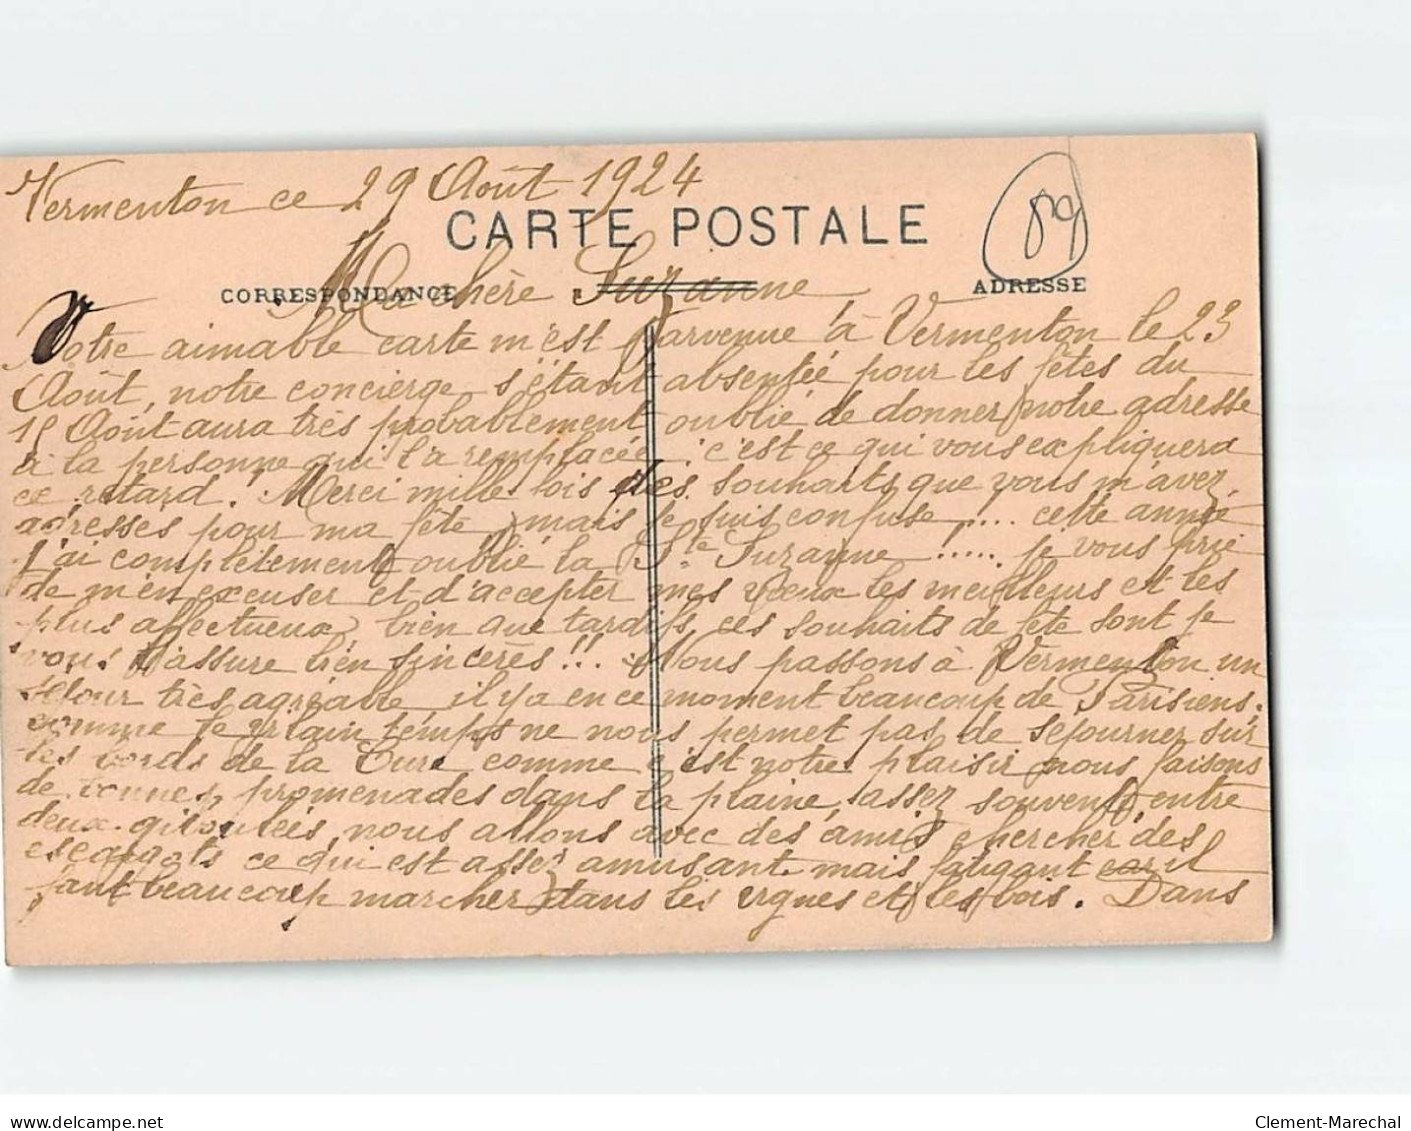 Vermenton ce 29 Août 1924
89
CARTE POSTALE
CORRESPONDANCE
ADRESSE
Ma chère Suzanne
Votre aimable carte m'est parvenue à Vermenton le 23
Août, notre concierge s'étant absentée pour les fêtes du
15 Août aura très probablement oublié de donner notre adresse
à la personne qui l'a remplacée, c'est ce qui vous expliquera
ce retard. Merci mille fois des souhaits que vous m'avez
adressés pour ma fête, mais je suis confuse .... cette année
j'ai complètement oublié la Ste Suzanne !.... je vous prie
de m'en excuser et d'accepter mes vœux les meilleurs et les
plus affectueux, bien que tardifs ces souhaits de fête sont je
vous l'assure bien sincères !!.. Nous passons à Vermenton un
séjour très agréable, il y a en ce moment beaucoup de Parisiens.
comme le temps ne nous permet pas de séjourner sur
les bords de la Cure comme c'est notre plaisir nous faisons
de bonnes promenades dans la plaine, assez souvent, entre
deux giboulées, nous allons avec des amis chercher des
escargots ce qui est assez amusant mais fatigant car il
faut beaucoup marcher dans les vignes et les bois. Dans
delcampe.net
Clement-Marechal